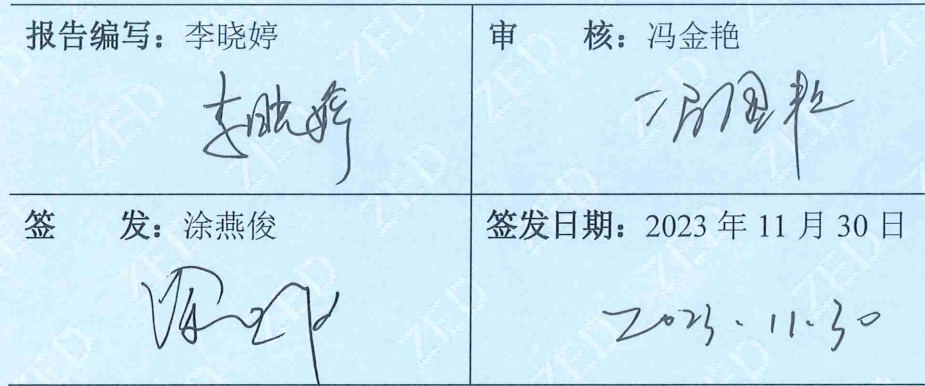 报告编写：李晓婷
审 核：冯金艳
李晓婷
冯金艳
签 发：涂燕俊
签发日期：2023 年 11 月 30 日
2023.11.30
ZED